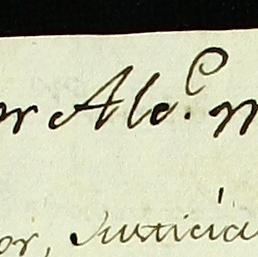 or Alo.e m
or, Justicia